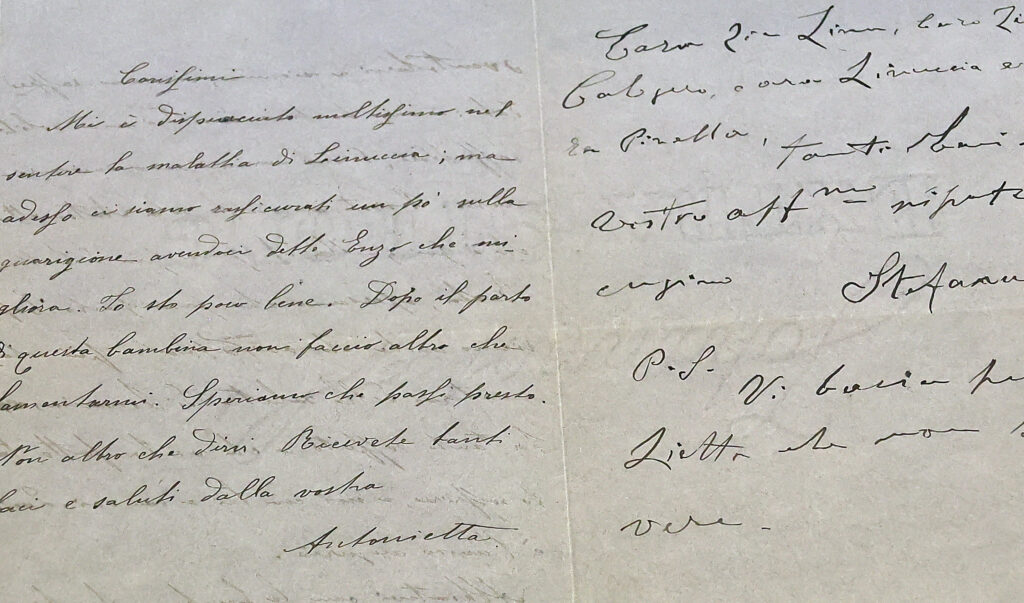 Carissimi
Mi è dispiaciuto moltissimo nel
sentire la malattia di Linuccia; ma
adesso ci siamo rassicurati un pò sulla
guarigione avendoci detto Enzo che mi
gliora. Io sto poco bene. Dopo il parto
di questa bambina non faccio altro che
lamentarmi. Speriamo che passi presto.
Non altro che dirvi. Ricevete tanti
baci e saluti dalla vostra
Antonietta
Cara Zia Lina, Caro Zi
Calogero, cara Linuccia e
ra Pinella, tanti baci
vostro aff.mo nipote
cugino Stefanu
P.S. Vi bacia pu
Lietta che non s
vere.